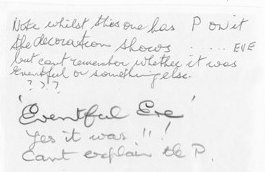 Note whilst this one has P on it
the decoration shows ..... EVE
but cant remember whether it was
Eventful or something else.
? ? ?
'Eventful Eve'
Yes it was !! !
Cant explain the P.